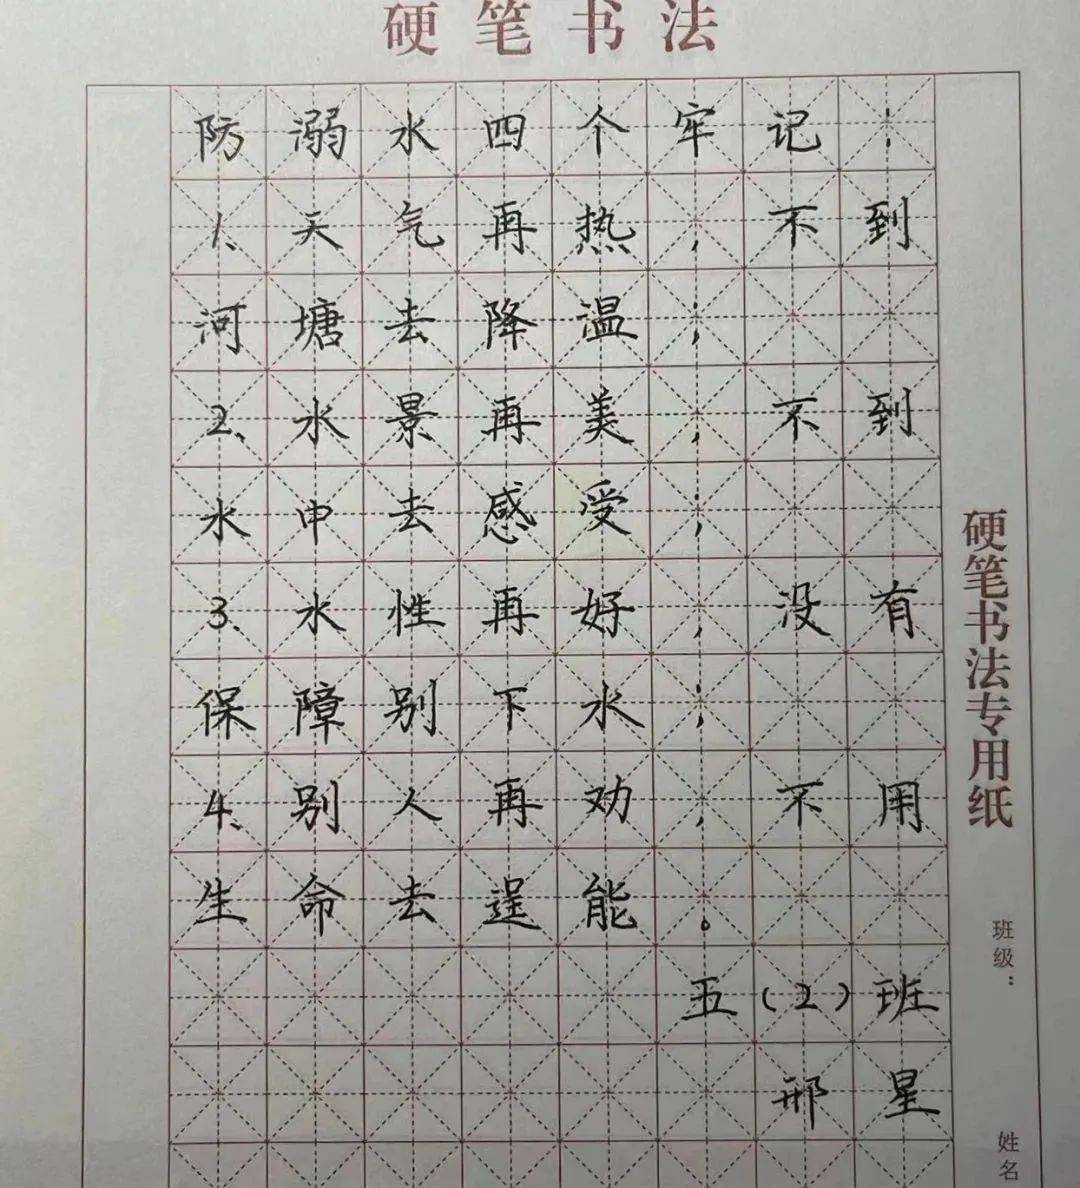 硬笔书法
防溺水四个牢记：
1、天气再热，不到
河塘去降温；
2、水景再美，不到
水中去感受；
3、水性再好，没有
保障别下水；
4、别人再劝，不用
生命去逞能。
五(2)班
邢星
硬笔书法专用纸
班级：
姓名